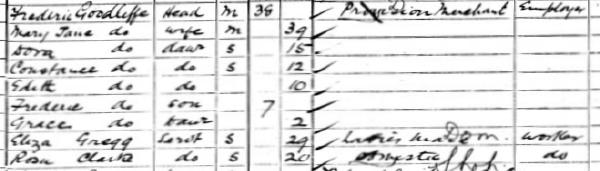 Frederic Goodliffe Head M 38 Provision Merchant Employer
Mary Jane do wife M 39
Dora do daur S 15
Constance do do S 12
Edith do do 10
Frederic do son 7
Grace do daur 2
Eliza Gregg Servt S 29 Dom. worker
Rosa Clarke do S 20 Domestic do